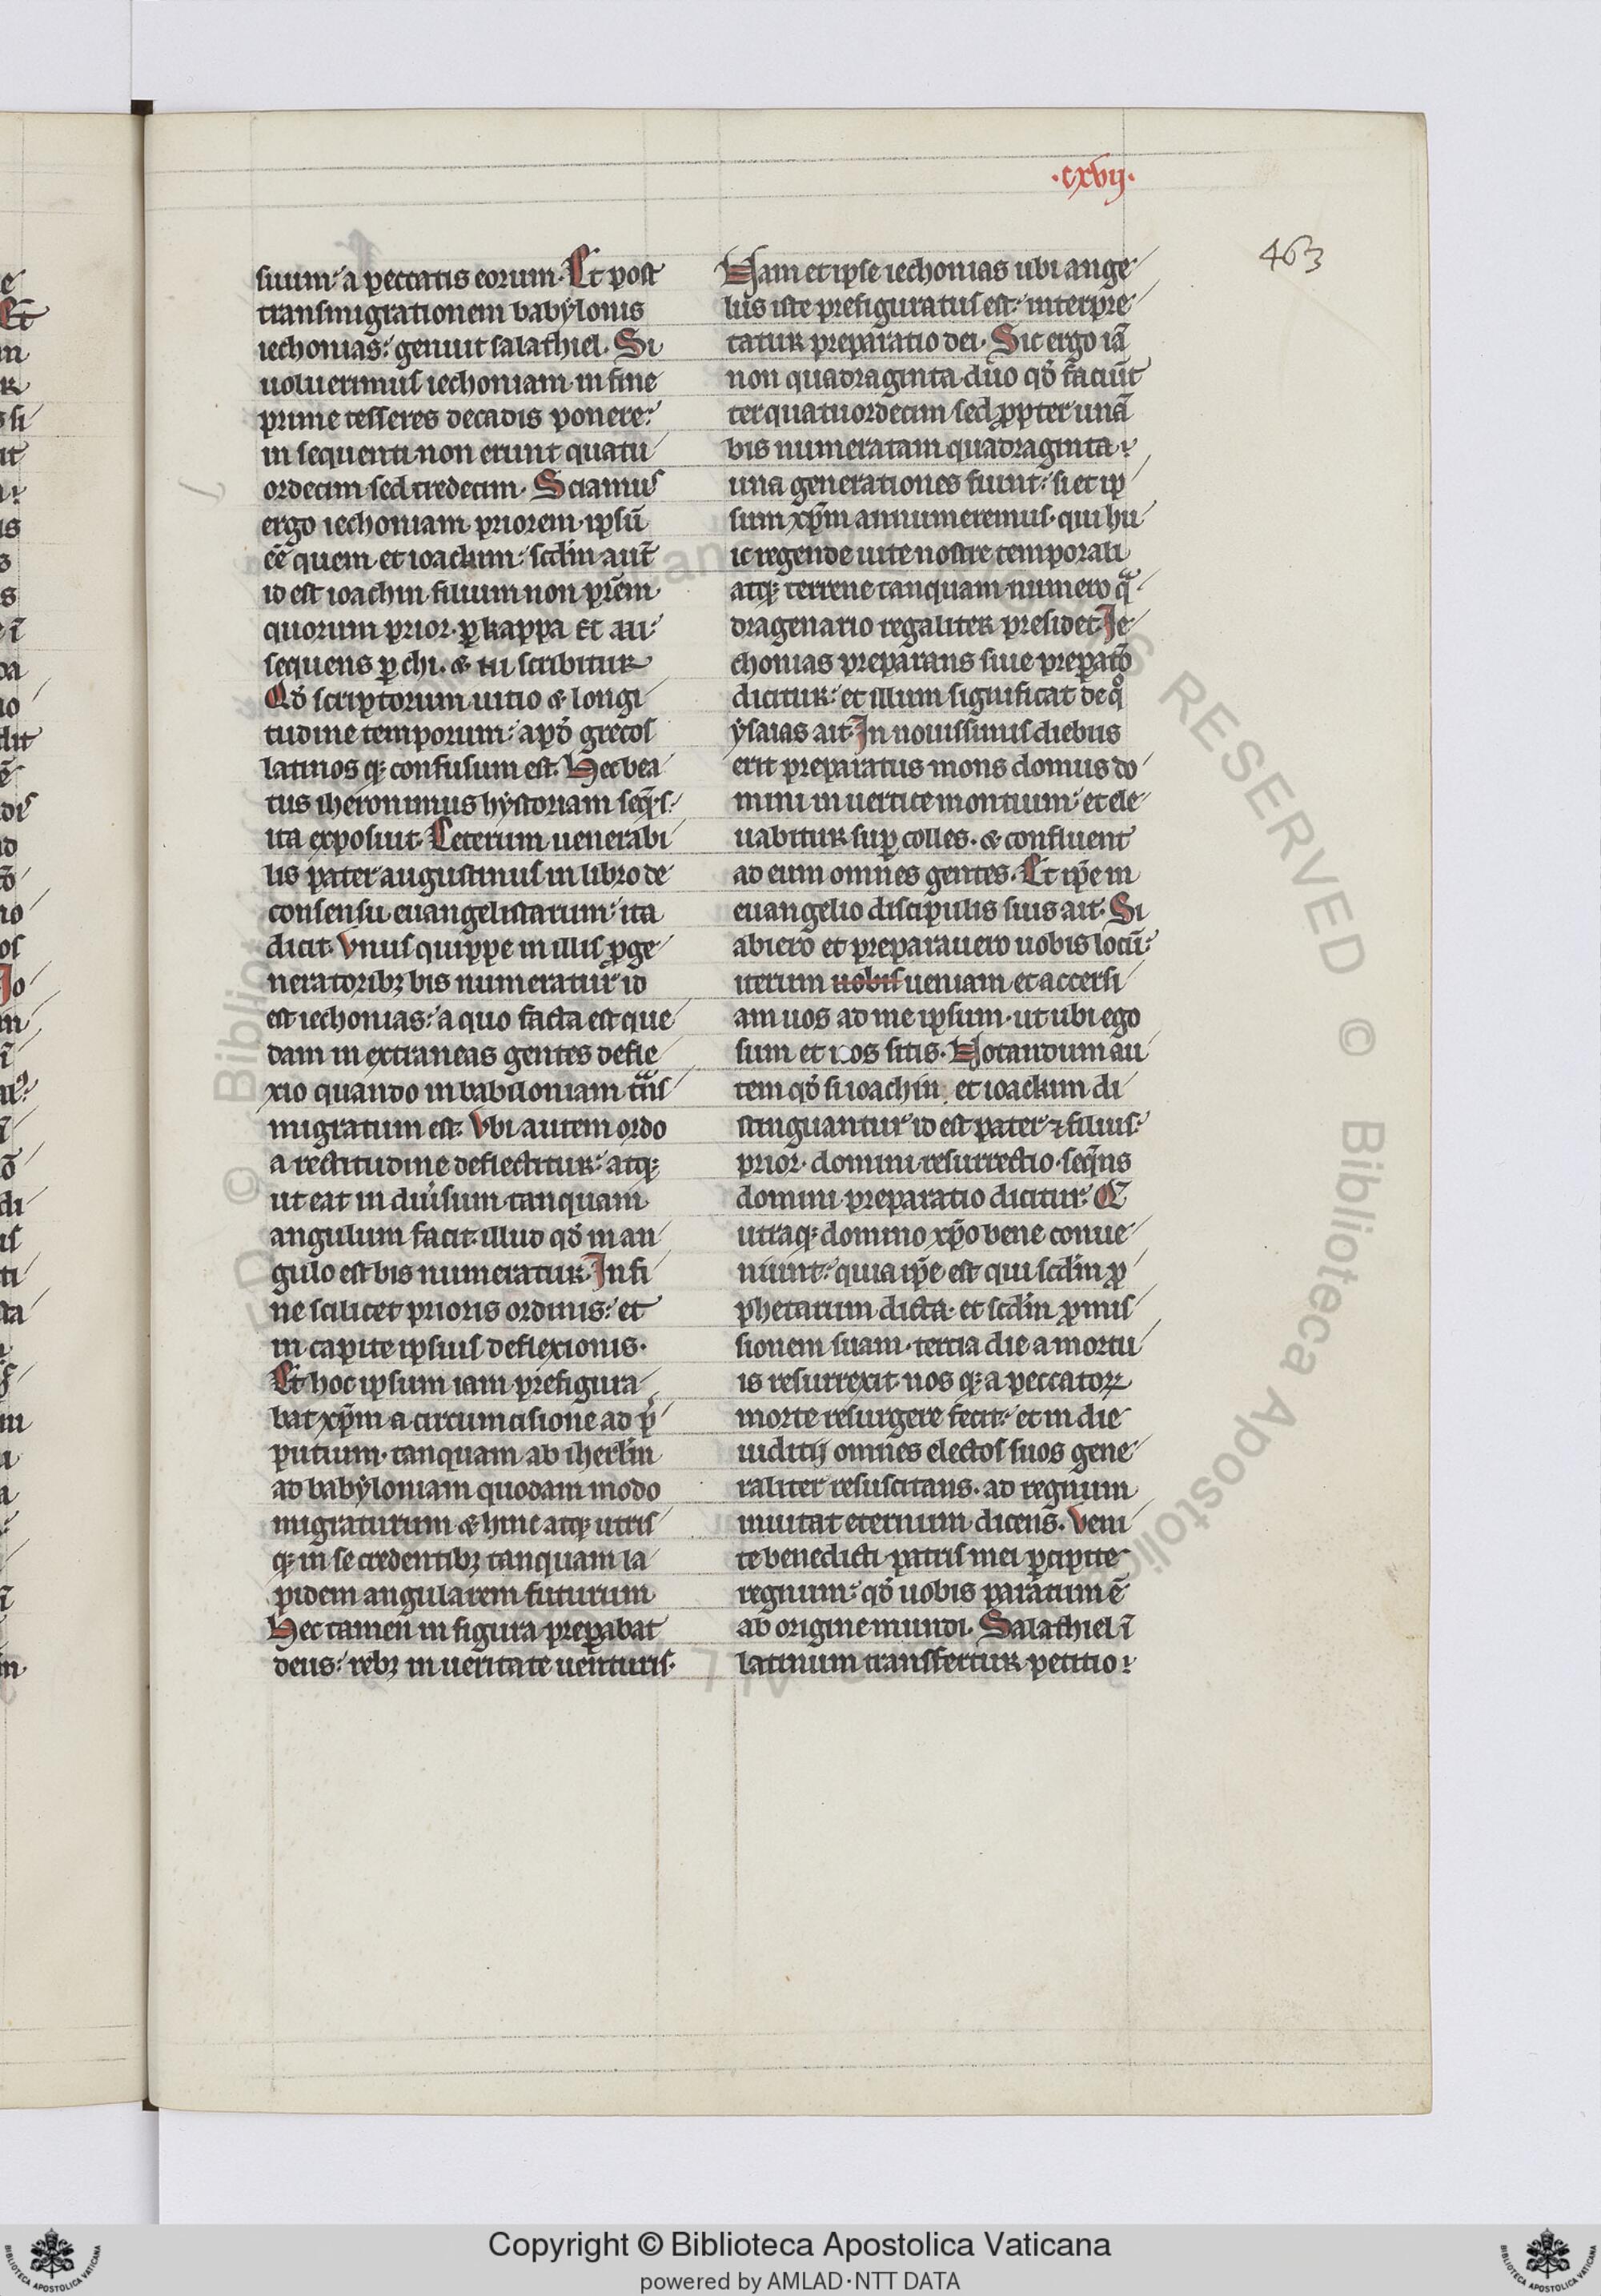 .cxvij.
463
suum: a peccatis eorum. Et post
transmigrationem babylonis
iechonias: genuit salathiel. Si
uoluerimus iechoniam in fine
prime tesseres decadis ponere:
in sequenti non erunt quatu
ordecim sed tredecim. Sciamus
ergo iechoniam priorem ipsū
eē quem et ioackim: scdm aut̄
id est ioachin filium non prēm
quorum prior. p kappa et
sequens p chi. & scribitur
Qd̓ scriptorum uitio & longi
tudine temporum: apd̓ grecos
latinos q; confusum est. Hec bea
tus iheronimus hystoriam
ita exposuit. Ceterum uenerabi
lis pater augustinus in libro de
consensu euangelistarum: ita
dicit. Vnus quippe in illis pge
neratoribz bis numeratur id
est iechonias: a quo facta est que
dam in extraneas gentes defle
xio quando in babiloniam tns
migratum est. Vbi autem ordo
a rectitudine deflectitur: atq;
ut eat in diuisum tanquam
angulum facit. illud qd̓ in an
gulo est bis numeratur. In fi
ne scilicet prioris ordinis: et
in capite ipsius deflexionis.
Et hoc ipsum iam prefigura
bat xp̄m a circumcisione ad p
putium. tanquam ab iherlm
ad babyloniam quodam modo
migraturum & hinc atq; utris
q; in se credentibz tanquam la
pidem angularem futurum
Hec tamen in figura preparabat
deus: rebz in ueritate uenturis.
Nam et ipse iechonias ubi ange
lus iste prefiguratus est: interpre
tatur preparatio dei. Sic ergo iā
non quadraginta duo qd̓ faciūt
ter quatuordecim sed ppter unā
bis numeratam quadraginta
una generationes fiunt: si et ip
sum xp̄m annumeremus. qui hu
ic regende uite nostre temporali
atq; terrene tanquam numero q
dragenario regaliter presidet. Ie
chonias preparans siue prepato
dicitur: et illum significat de q̊
ysaias ait. In nouissimis diebus
erit preparatus mons domus do
mini in uertice montium: et ele
uabitur sup colles. & confluent
ad eum omnes gentes. Et ipē in
euangelio discipulis suis ait. Si
abiero et preparauero uobis locū:
iterum uobis ueniam et accersi
am uos ad me ipsum. ut ubi ego
sum et uos sitis. Notandum au
tem qd̓ si ioachin et ioackim di
stinguantur id est pater & filius:
prior. domini resurrectio. seqns
domini preparatio dicitur. Et
utraq; domino xp̄o bene conue
niunt: quia ipē est qui scdm p
phetarum dicta. et scdm pmis
sionem suam. tercia die a mortu
is resurrexit. nos q; a peccatoꝝ
morte resurgere fecit: et in die
iudicij omnes electos suos gene
raliter resuscitans. ad regnum
inuitat eternum dicens. Veni
te benedicti patris mei pcipite
regnum: qd̓ uobis paratum ē
ab origine mundi. Salathiel ī
latinum transfertur petitio
Copyright © Biblioteca Apostolica Vaticana
powered by AMLAD·NTT DATA